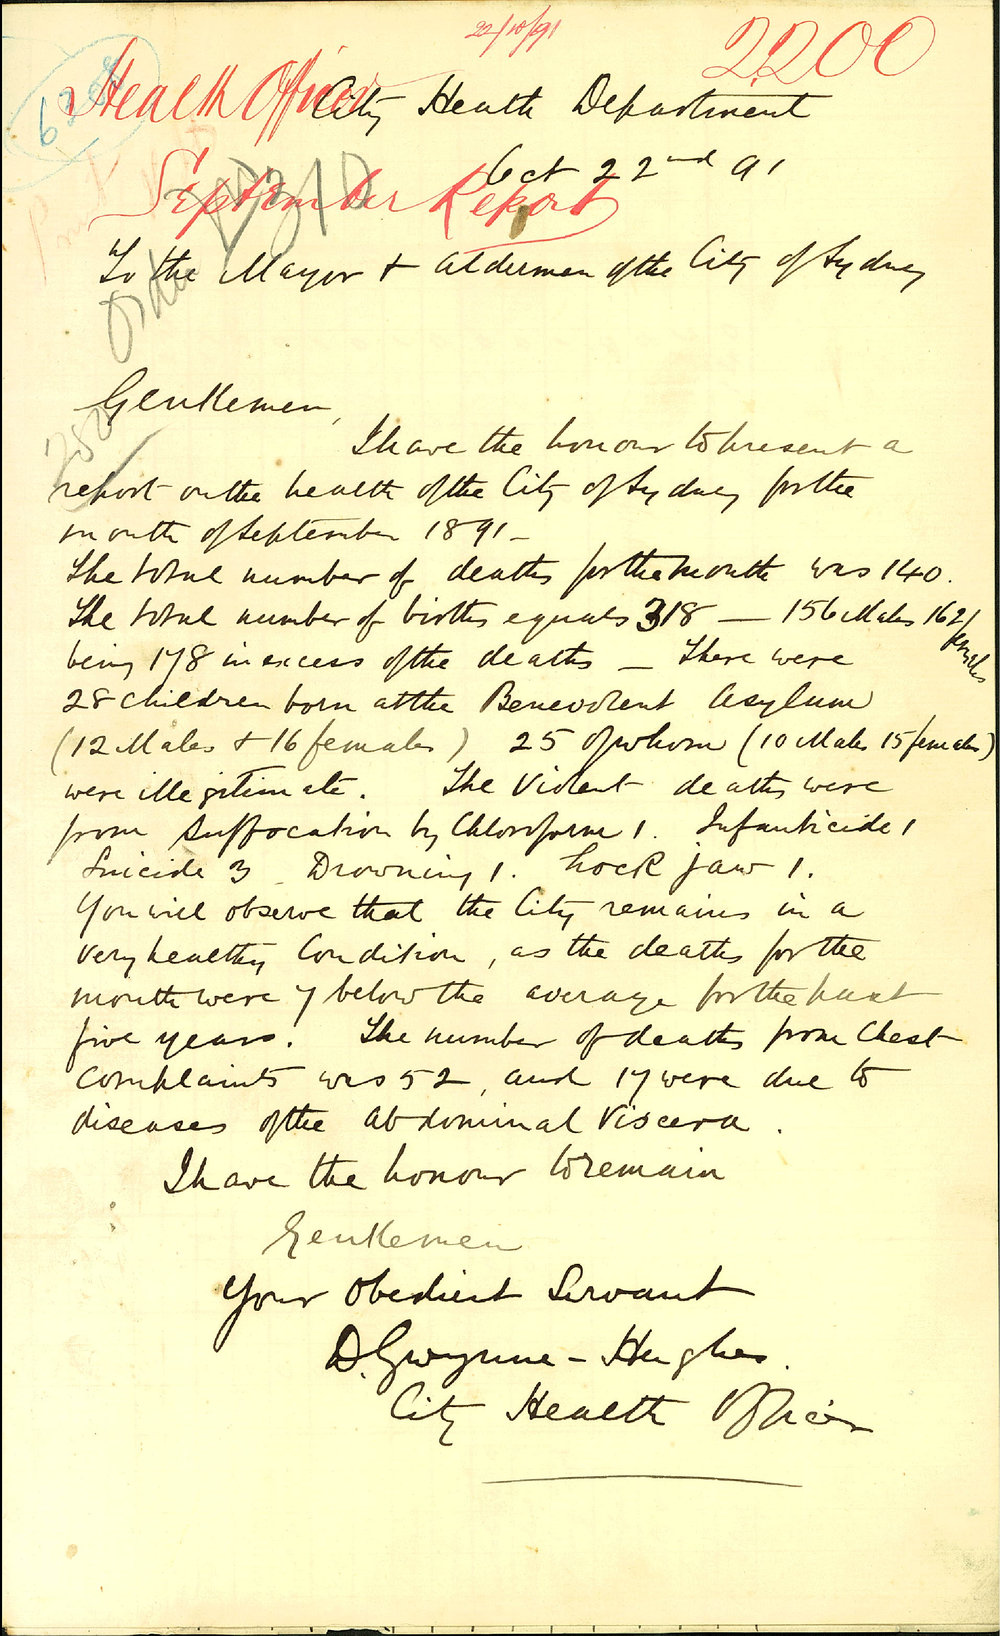 22/10/91
2200
Health Officer
City Health Department
Oct 22nd 91
September Report
To the Mayor + Aldermen of the City of Sydney
Gentlemen,
I have the honour to present a
report on the health of the City of Sydney for the
month of September 1891 -
The total number of deaths for the month was 140.
The total number of births equals 318 — 156 Males 162/
females
being 178 in excess of the deaths — There were
28 children born at the Benevolent Asylum
(12 Males + 16 females) 25 of whom (10 Males 15 females)
were illegitimate. The Violent deaths were
from Suffocation by Chloroform 1. Infanticide 1
Suicide 3 Drowning 1. Lock jaw 1.
You will observe that the City remains in a
very healthy Condition, as the deaths for the
month were 7 below the average for the past
five years. The number of deaths from Chest
Complaints was 52, and 17 were due to
diseases of the Abdominal Viscera.
I have the honour to remain
Gentlemen
Your Obedient Servant
D. Gwynne - Hughes.
City Health Officer